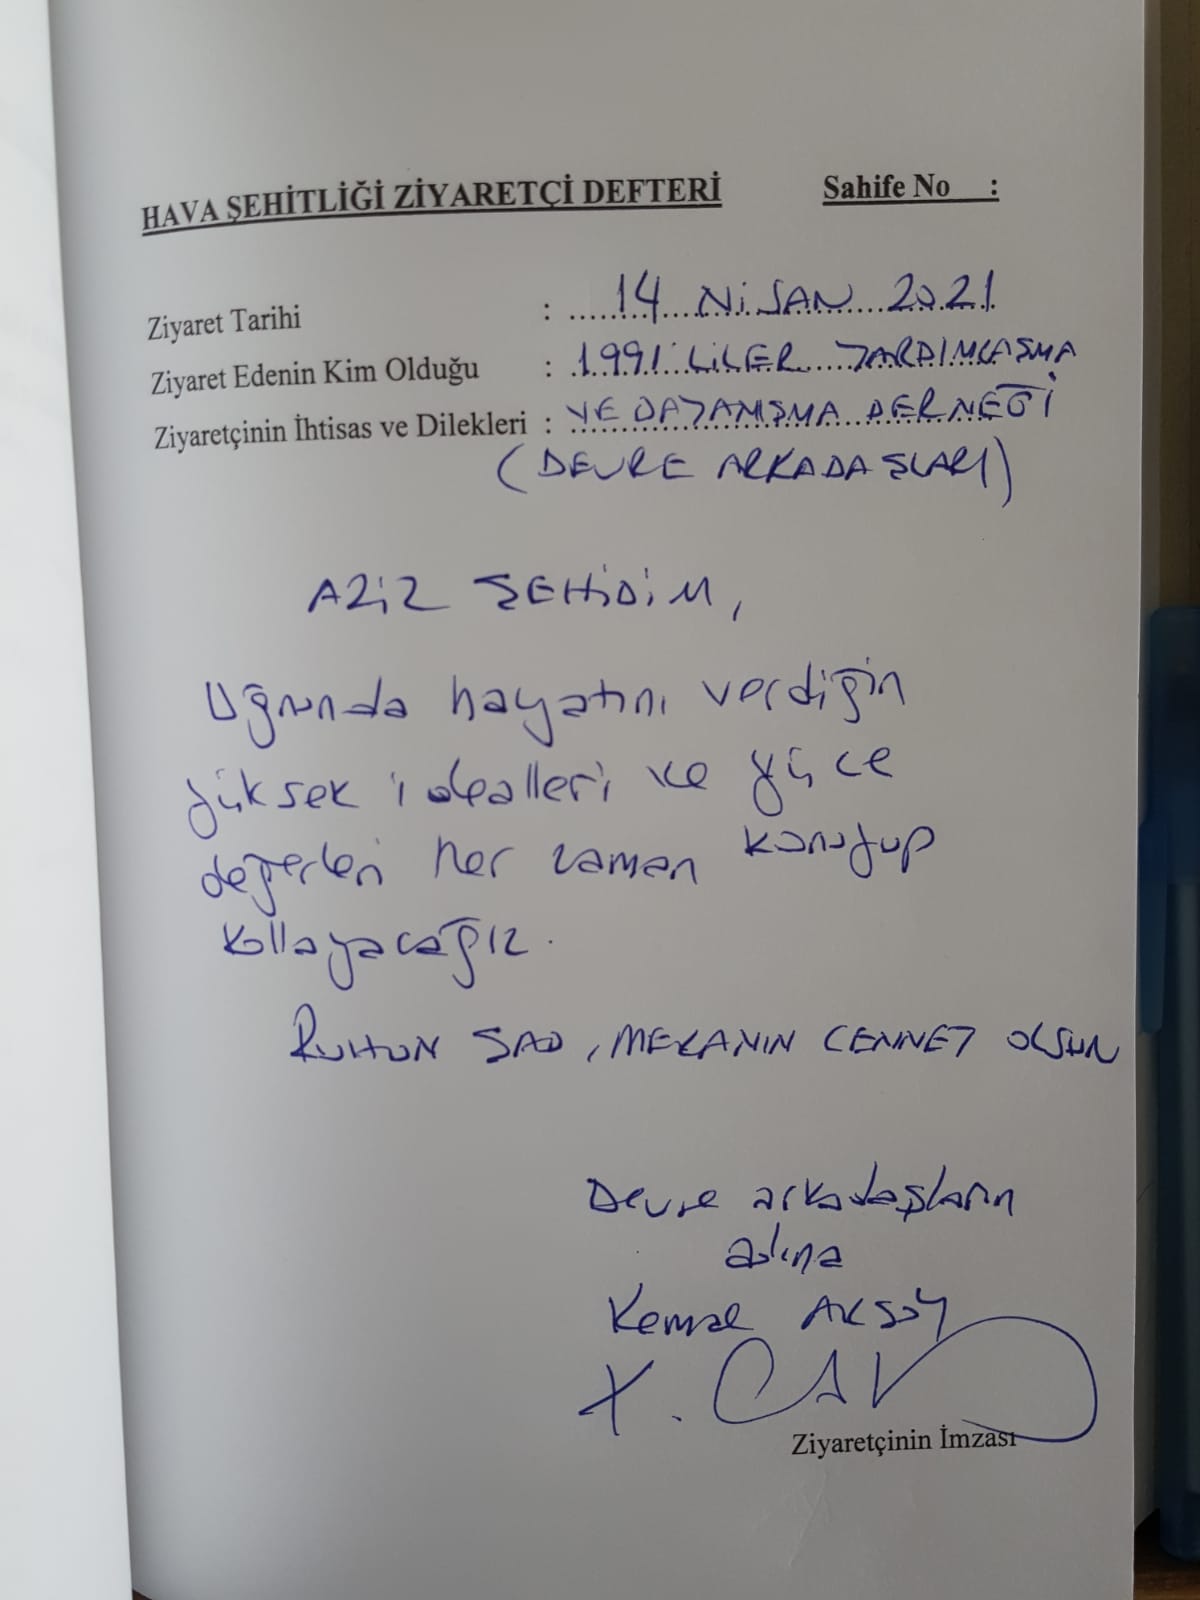 HAVA ŞEHİTLİĞİ ZİYARETÇİ DEFTERİ Sahife No :
Ziyaret Tarihi : 14 NİSAN 2021
Ziyaret Edenin Kim Olduğu : 1991'LİLER YARDIMLAŞMA
Ziyaretçinin İhtisas ve Dilekleri : VE DAYANIŞMA DERNEĞİ
(DEVRE ARKADAŞLARI)
AZİZ ŞEHİDİM,
Uğrunda hayatını verdiğin
yüksek idealleri ve yüce
değerleri her zaman koruyup
kollayacağız.
RUHUN ŞAD, MEKANIN CENNET OLSUN
Devre arkadaşların
adına
Kemal AKSOY
Ziyaretçinin İmzası